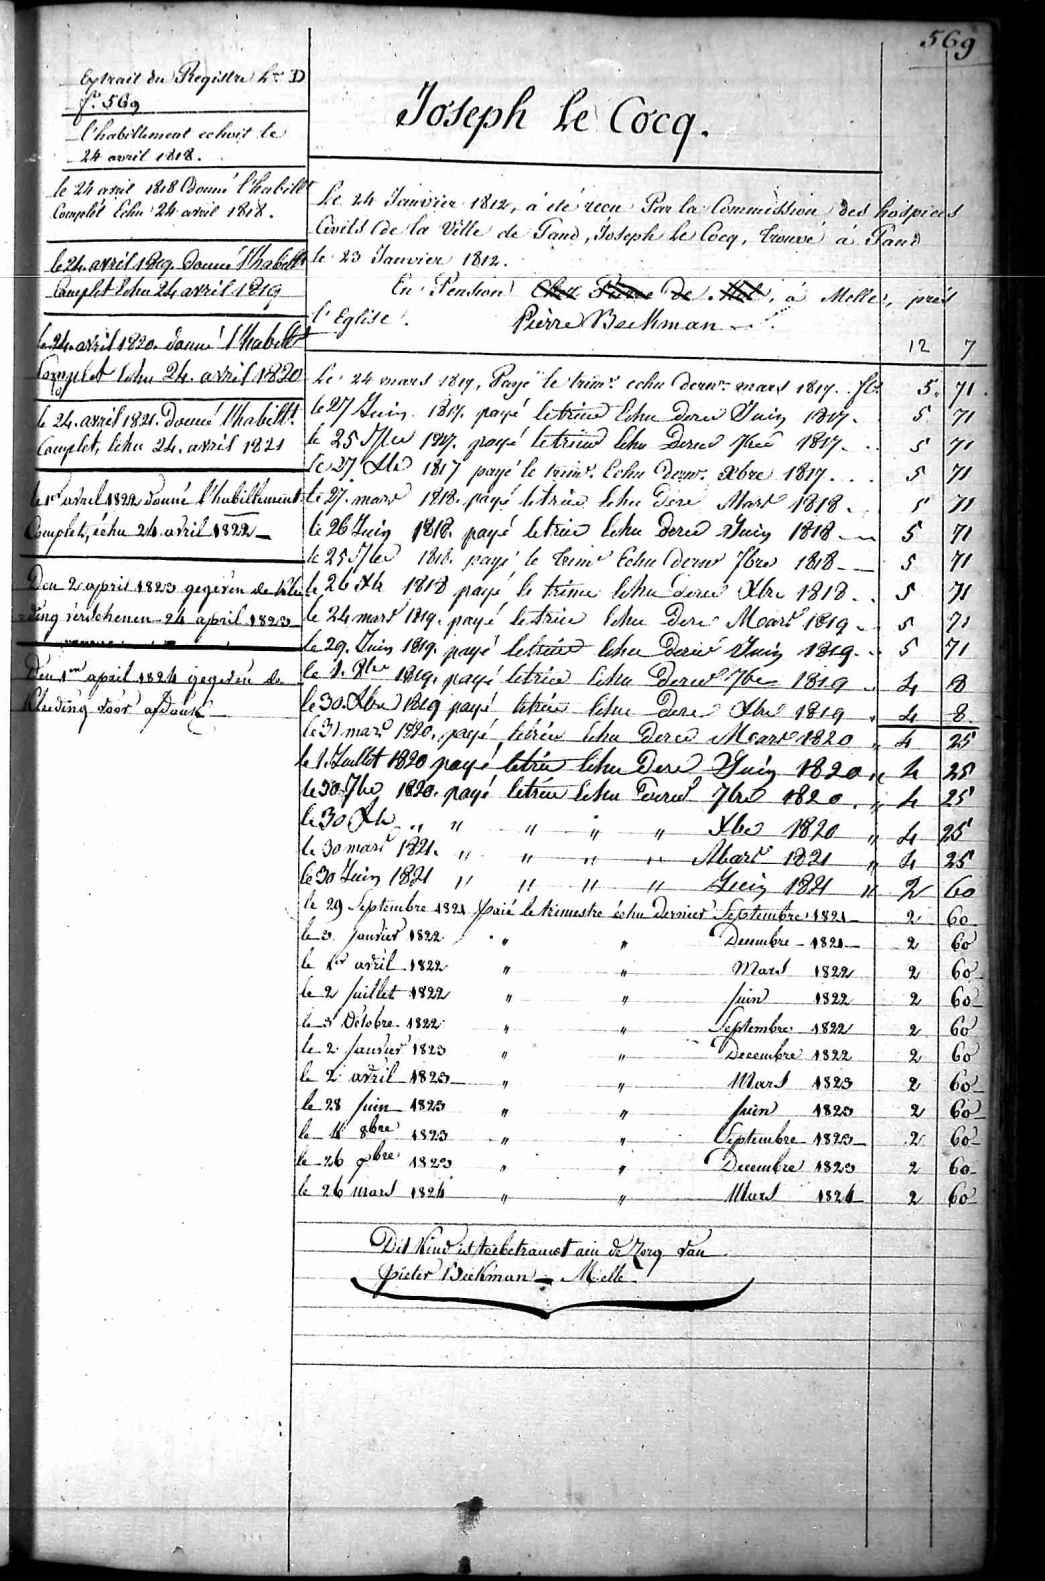 569
Extrait du Registre Lre D
fo. 569
l'habillement echoit le
24 avril 1818.
le 24 avril 1818 Donné l'habillt
Complêt Echu 24 avril 1818.
le 24. avril 1819. donné l'habillt
Complet Echu 24 avril 1819
le 24. avril 1820. donné l'habillt
Complet Echu 24. avril 1820
le 24. avril 1821. Donné l'habillt.
Complet, Echu 24. avril 1821
le 1r avril 1822 donné l'habillement
Complet, échu 24 avril 1822
Den 2 april 1823 gegeven de klee
ding verschenen 24 april 1823
Den 1en april 1824 gegeven de
Kleeding voor afdank
Joseph Le Cocq.
Le 24 Janvier 1812, a été reçu Par la Commission des hospices
Civils de la Ville de Gand, Joseph Le Cocq, trouvé à Gand
le 23 Janvier 1812.
En Pension Chez Pierre de, à Melle, près
l'Eglise. Pierre Beekman
12 7
Le 24 mars 1817, Payé le trimr. echu dernr. mars 1817. fls. 5. 71.
le 27 Juin 1817. payé le trim Echu Dernr Juin 1817. 5 71
le 25 7bre 1817. payé le trim Echu Dernr 7bre 1817. 5 71
le 27 Xbre 1817 payé le trimr. Echu dernr. Xbre 1817. 5 71
le 27. mars 1818. payé le trim Echu dernr Mars 1818. 5 71
le 26 Juin 1818. payé le trim Echu dernr Juin 1818 5 71
le 25 7bre 1818. payé le trimr Echu dernr 7bre 1818 5 71
le 26 Xbr 1818 payé le trim Echu dernr Xbre 1818. 5 71
le 24 mars 1819. payé le trim Echu dernr Mars 1819 5 71
le 29. Juin 1819. payé le trim Echu dernr Juin 1819. 5 71
le 1. Xbre 1819. payé le trim Echu dernr 7bre 1819 4 8
le 30. Xbre 1819 payé le trim Echu dernr Xbre 1819 " 4 8.
le 31 mars 1820. payé le trim Echu dernr Mars 1820 " 4 25
le 1. Juillet 1820 payé le trim Echu dernr Juin 1820 " 4 25
le 30 7bre 1820. payé le trim Echu dernr 7bre 1820. " 4 25
le 30 Xbr " " " " " Xbre 1820 " 4 25
le 30 mars 1821. " " " " Mars 1821 " 4 25
le 30 Juin 1821 " " " " Juin 1821 " 2 60
le 29 Septembre 1821 payé le trimestre échu dernier Septembre 1821 2 60
le 3 Janvier 1822 " " Decembre 1821 2 60
le 1er avril 1822 " " Mars 1822 2 60
le 2 Juillet 1822 " " Juin 1822 2 60
le 3 Octobre 1822 " " Septembre 1822 2 60
le 2 Janvier 1823 " " Decembre 1822 2 60
le 2 avril 1823 " " Mars 1823 2 60
le 28 Juin 1823 " " Juin 1823 2 60
le 4 8bre 1823 " " Septembre 1823 2 60
le 26 Xbre 1823 " " Decembre 1823 2 60
le 26 mars 1824 " " Mars 1824 2 60
Dit Kind is toebetrauwt aen de Zorg van
pieter Beekman Melle